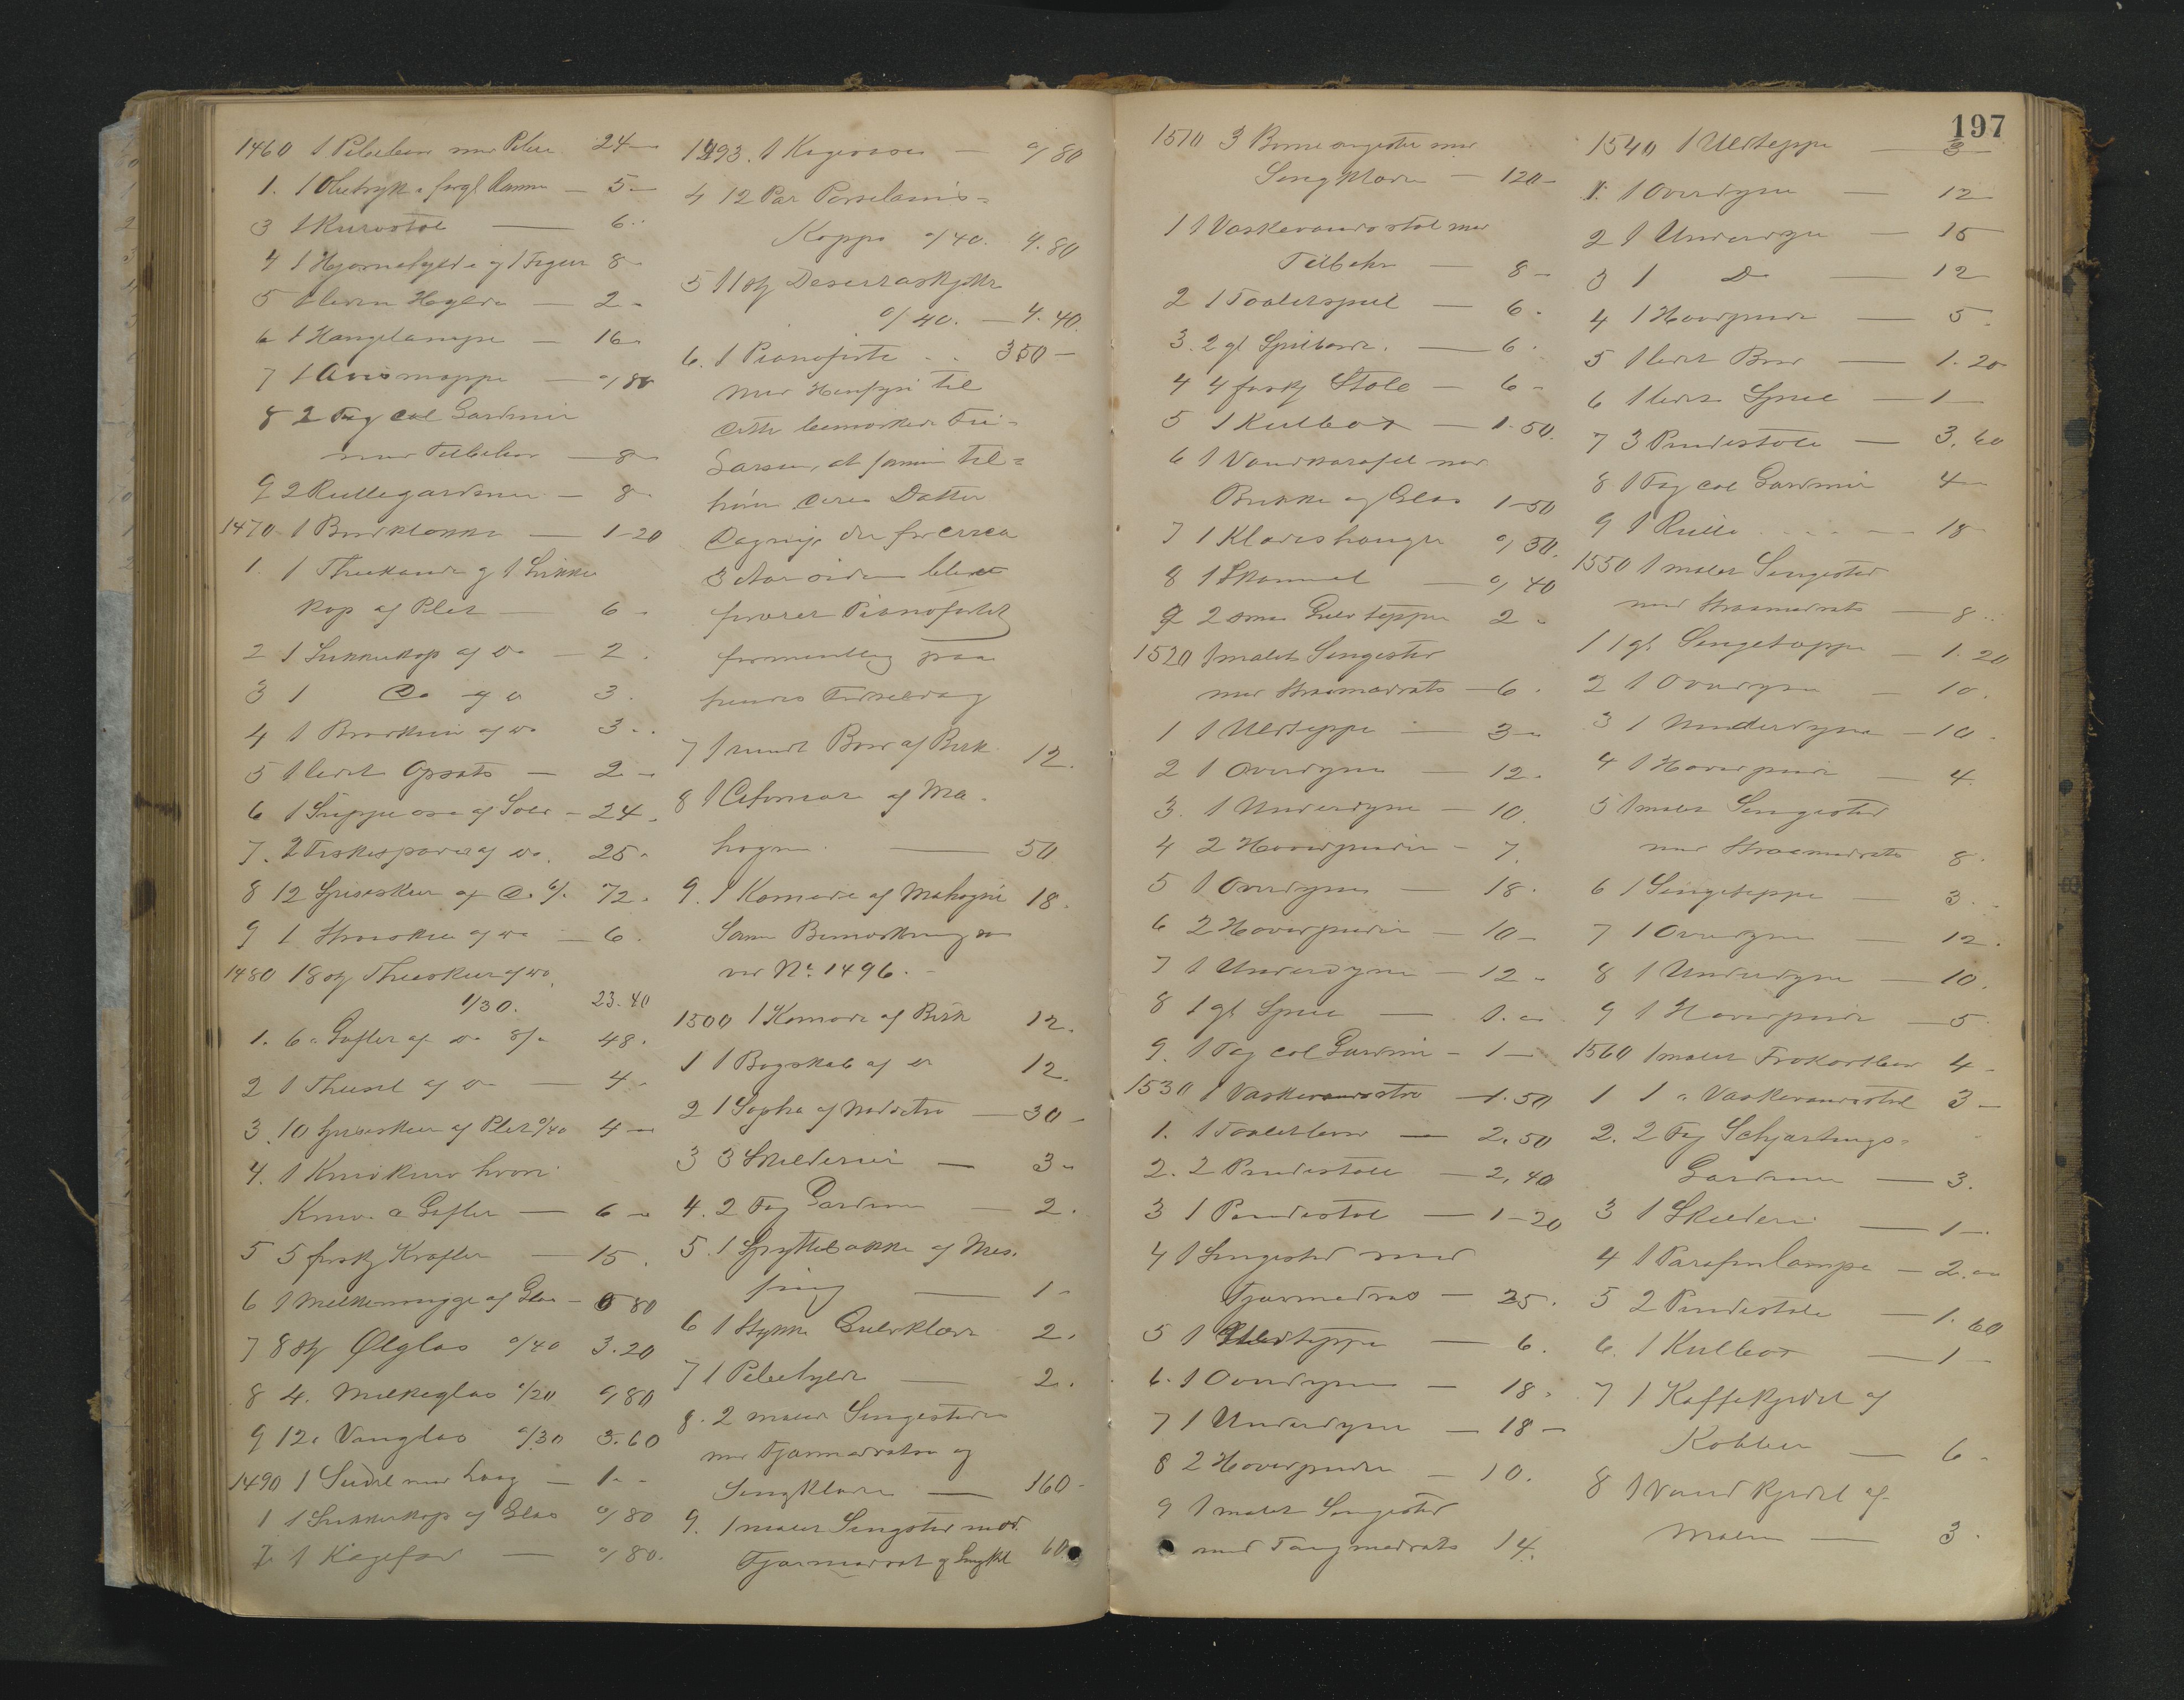 1460 1 Pibebord med Piber 24 —
1. 1 Olietryk i forgl Ramme — 5 —
3 1 Kurvstol — 6 "
4 1 Hjørnehylde og 1 Figur 8 "
5 1 liden Hylde — 2 "
6 1 Hængelampe — 16 "
7 1 Avismappe — "/80
8 2 Fag col Gardiner
med Tilbehør — 8 "
9 2 Rullegardiner — 8 "
1470 1 Bordklokke — 1-20
1. 1 Theekande og 1 Sukker
kop af Plet — 6 "
2 1 Sukkerkop af do — 2 .
3 1 Do af do 3 .
4 1 Brødkurv af do 3 ..
5 1 lidet Opsats — 2 —
6 1 Suppeøse af Sølv — 24 .
7. 2 Fiskespader af do. 25 "
8 12 Spiseskeer af Do. 6/. 72 .
9 1 Strøske af do — 6 .
1480 18 stk Theeskeer af do.
1/30. 23.40
1. 6 " Gafler af do 8/" 48 .
2 1 Theesil af do — 4 "
3 10 Spiseskeer af Plet "/40 4 —
4. 1 Knivkurv hvori
Knive & Gafler — 6 —
5 5 forskj Krafler — 15 .
6 1 Melkemugge af Glas — 0 80
7 8 stk Ølglas "/40 3.20
8 4. Melkeglas "/20 "/80
9 12 " Vinglas "/30 3.60
1490 1 Seidel med Laag — 1 "
1 1 Sukkerkop af Glas "/80
2 1 Kagefad — "/80.
1493. 1 Kagevase — "/80
4 12 Par Porselains-
Kopper "/40. 4.80
5 11 stk Desertaskjetter
"/40. — 4.40.
6. 1 Pianoforte .. 350 —
Med Hensyn til
dette bemærkede Fru
Larsen, at samme til=
hører deres Datter
Dagny, der for circa
3 Aar siden blev
foræret Pianofortet
formentlig paa
hendes Fødselsdag
7 1 rundt Bord af Birk 12.
8 1 Cifonier af Ma-
hogni — 50
9. 1 Komode af Mahogni 18.
Samme Bemærkning som
ved No. 1496. —
1500 1 Komode af Birk 12.
1 1 Bogskab af do 12.
2 1 Sopha af Nødetræ — 30 —
3 3 Skilderier — 3 "
4. 2 Fag Gardiner — 2 .
5. 1 Spyttebakke af Mes-
sing — 1 "
6 1 Stykke Gulvklæde 2 .
7 1 Pibehylde — 2 .
8. 2 malede Sengesteder
med Fjærmadratser og
Sengklæder — 160 —
9. 1 malet Sengsted med
Fjærmadrat og Sengkl 60
197
1510 3 Børnesengesteder med
Sengklæder — 120 —
1 1 Vaskevandsstol med
Tilbehør — 8 —
2 1 Toaletspeil — 6 .
3. 2 gl Spilleborde. — 6 .
4 4 forskj Stole — 6 —
5 1 Kulbox — 1.50.
6 1 Vandkarafel med
Brikke og Glas 1-50
7 1 Klædeshænger "/50.
8 1 Skammel — "/40
9 2 smaa Gulvtepper 2 "
1520 1 malet Sengested
med Straamadrats — 6 .
1 1 Uldteppe — 3 "
2 1 Overdyne — 12 .
3. 1 Underdyne — 10.
4 2 Hovedpuder — 7.
5 1 Overdyne — 18 .
6 2 Hovedpuder — 10 —
7 1 Underdyne — 12 "
8 1 gl Speil — 1. "
9. 1 Fag col Gardiner — 1 —
1530 1 Vaskevandsstol — 1.50
1. 1 Toaletbord — 2.50
2. 2 Pindestole — 2.40
3 1 Pindestol — 1-20
4 1 Sengested med
Fjærmadras — 25.
5 1 Uldteppe — 6 .
6. 1 Overdyne — 18 .
7 1 Underdyne — 18 —
8 2 Hovedpuder — 10.
9 1 malet Sengested
med Tangmadrats 14.
1540 1 Uldteppe — 3
1. 1 Overdyne — 12
2 1 Underdyne — 15
3 1 Do — 12
4 1 Hovedpude — 5
5 1 lidet Bord — 1.20
6 1 lidet Speil — 1 —
7 3 Pindestole — 3.60
8 1 Fag col Gardiner 4 —
9 1 Rulle — 18
1550 1 malet Sengested
med Straamadrats — 8 "
1 1 gl Sengeteppe — 1.20
2 1 Overdyne — 10.
3 1 Underdyne — 10 .
4 1 Hovedpude — 4.
5 1 malet Sengested
med Straamadrats 8 .
6 1 Sengeteppe — 3 .
7 1 Overdyne — 12 .
8 1 Underdyne — 10 .
9 1 Hovedpude — 5
1560 1 malet Frokostbord 4 —
1 1 " Vaskevandsstol 3 —
2. 2 Fag Schjærtings-
Gardiner — 3.
3 1 Skilderi — 1 —.
4 1 Parafinlampe — 2. "
5 2 Pindestole — 1.60
6. 1 Kulbox — 1 —
7 1 Kaffekjedel af
Kobber — 6 .
8 1 Vandkjedel af
Malm — 3 .